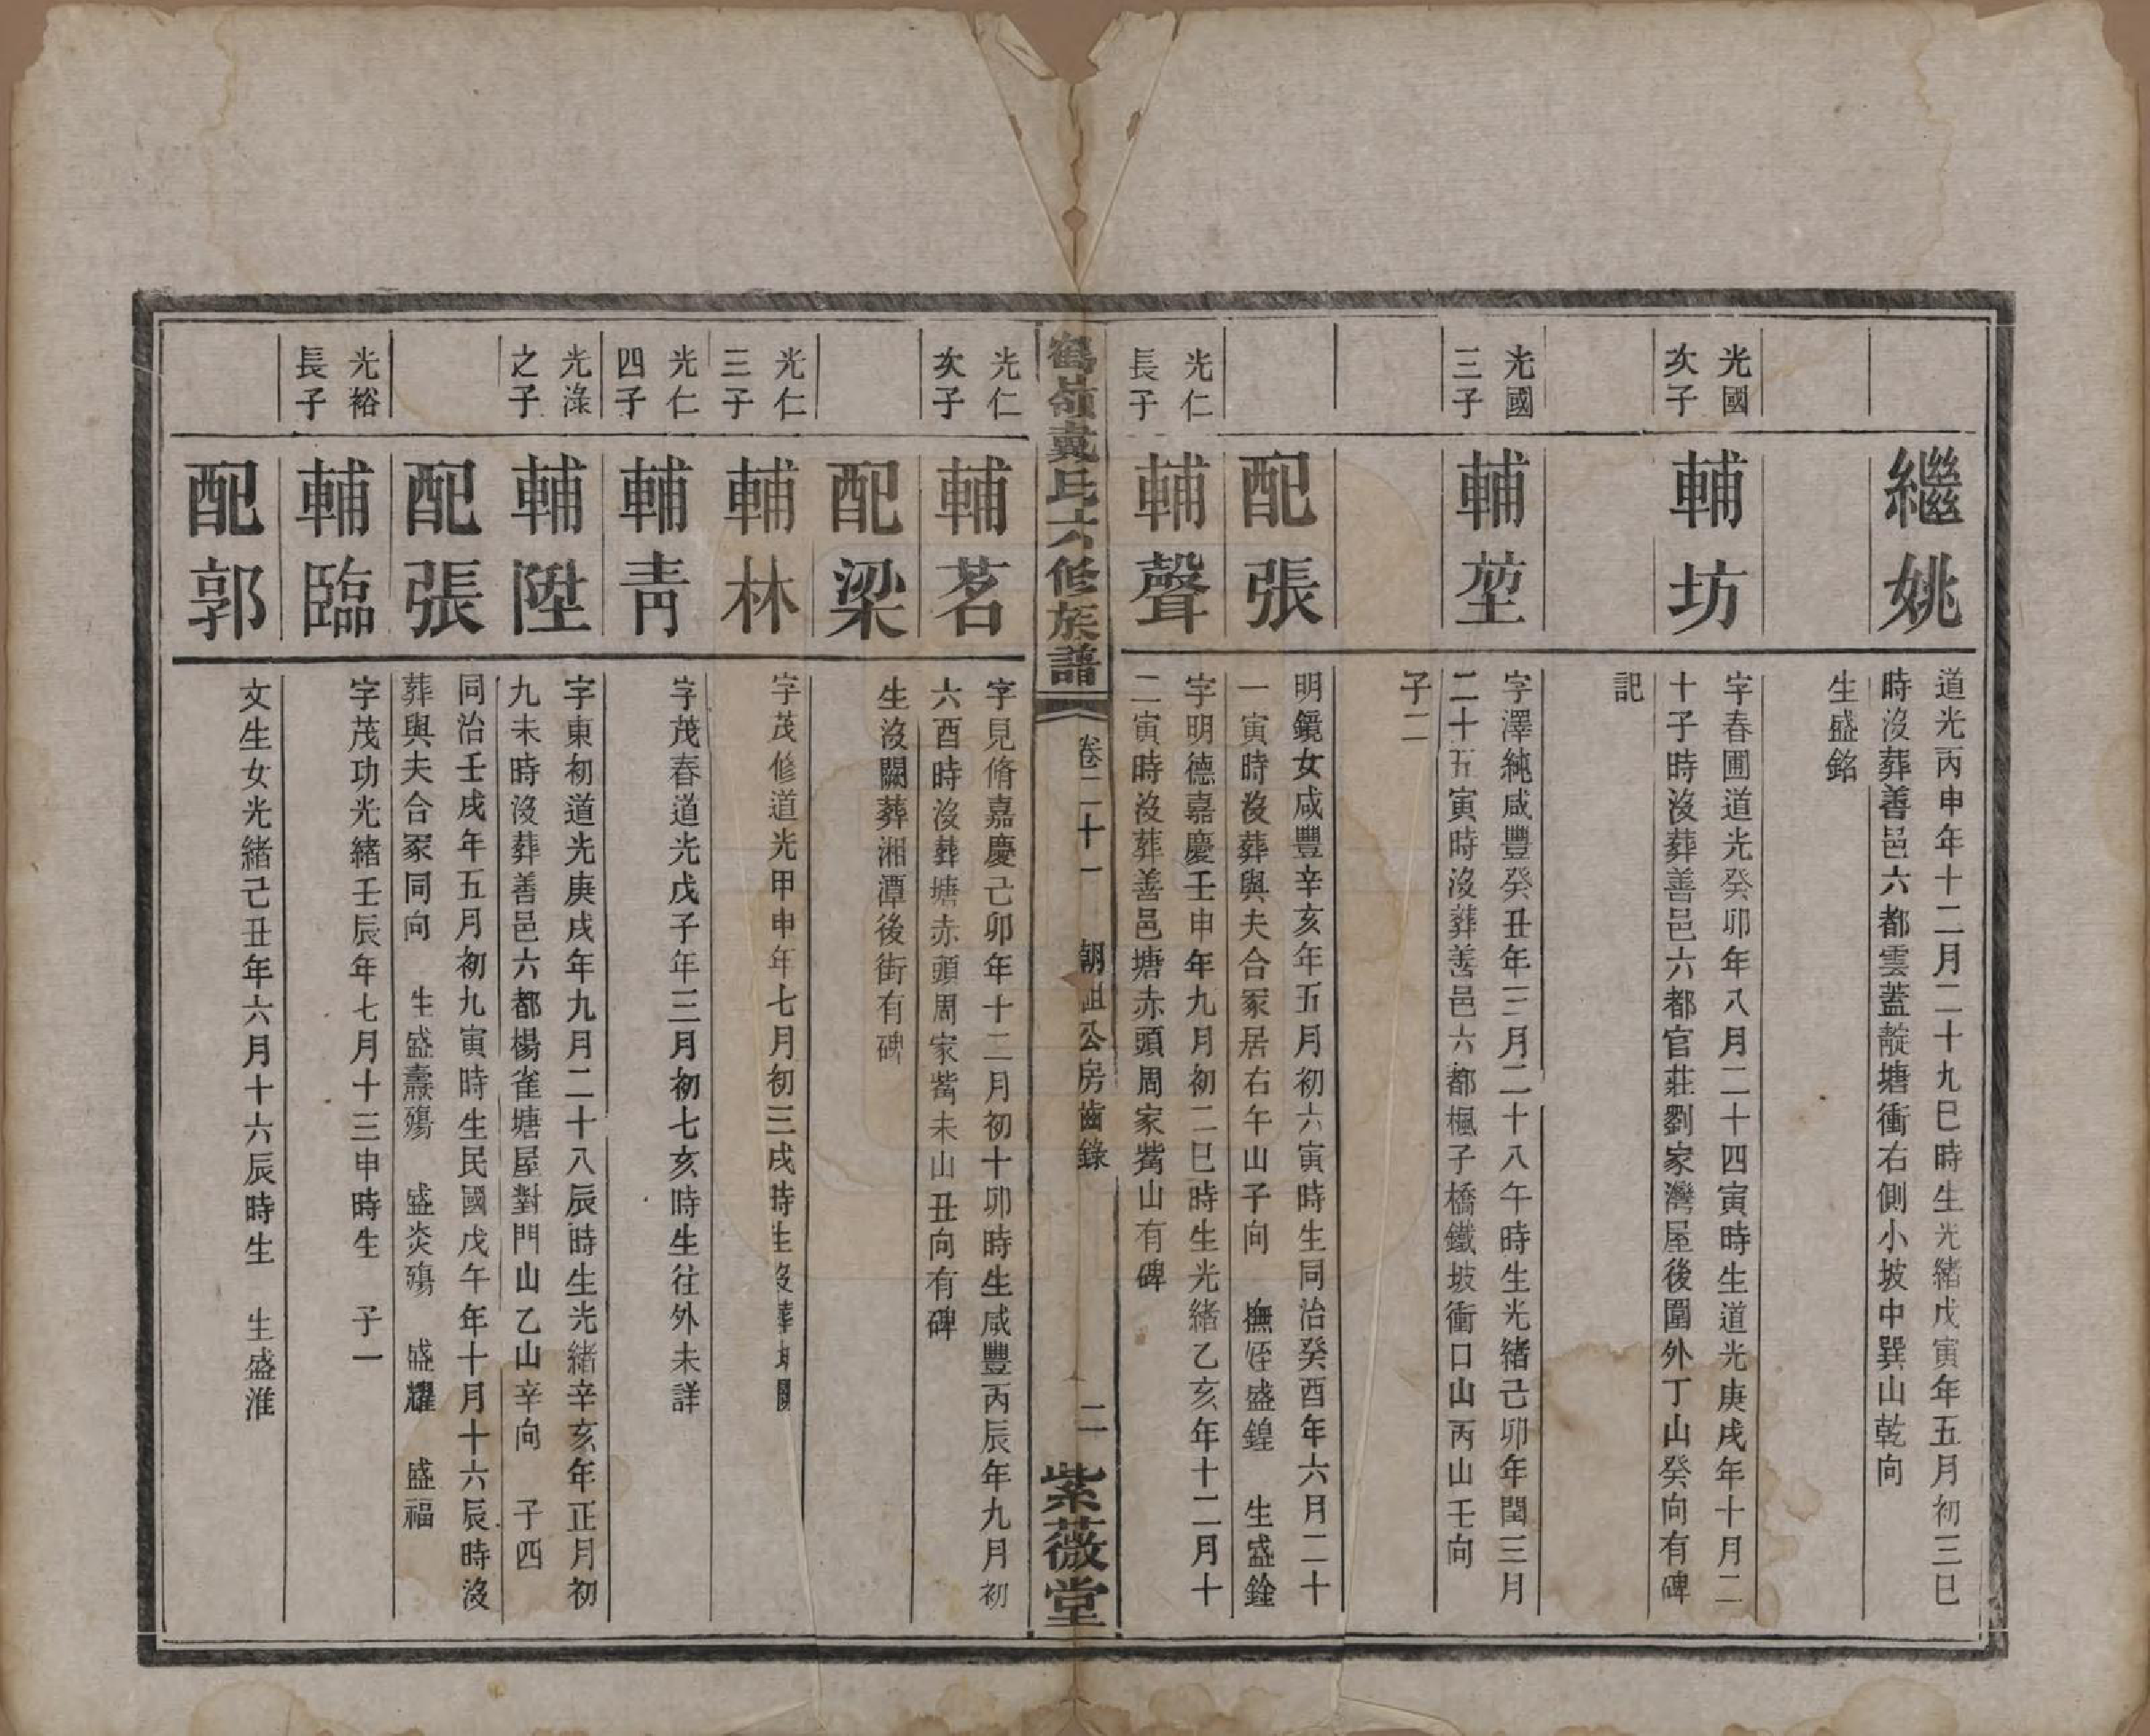 繼姚
道光丙申年十二月二十九巳時生光緒戊寅年五月初三巳
時沒葬善邑六都雲蓋靛塘衝右側小坡中巽山乾向
生盛銘
光國
次子
輔坊
字春圃道光癸卯年八月二十四寅時生道光庚戌年十月二
十子時沒葬善邑六都官莊劉家灣屋後圍外丁山癸向有碑
記
光國
三子
輔堃
字澤純咸豐癸丑年三月二十八午時生光緒己卯年閏三月
二十五寅時沒葬善邑六都楓子橋鐵坡衝口山丙山壬向
子二
配張
明鏡女咸豐辛亥年五月初六寅時生同治癸酉年六月二十
一寅時沒葬與夫合冢居右午山子向 撫姪盛鍠 生盛銓
光仁
長子
輔聲
字明德嘉慶壬申年九月初二巳時生光緒乙亥年十二月十
二寅時沒葬善邑塘赤頭周家嘴山有碑
鶴嶺戴氏六修族譜
卷二十一
朝祖公房齒錄
二
紫薇堂
光仁
次子
輔茗
字見脩嘉慶己卯年十二月初十卯時生咸豐丙辰年九月初
六酉時沒葬塘赤頭周家嘴未山丑向有碑
配梁
生沒闕葬湘潭後街有碑
光仁
三子
輔林
字茂修道光甲申年七月初三戌時生沒葬俱闕
光仁
四子
輔青
字茂春道光戊子年三月初七亥時生往外未詳
光淥
之子
輔陞
字東初道光庚戌年九月二十八辰時生光緒辛亥年正月初
九未時沒葬善邑六都楊雀塘屋對門山乙山辛向 子四
配張
同治壬戌年五月初九寅時生民國戊午年十月十六辰時沒
葬與夫合冢同向 生盛壽殤 盛炎殤 盛耀 盛福
光裕
長子
輔臨
字茂功光緒壬辰年七月十三申時生 子一
配郭
文生女光緒己丑年六月十六辰時生 生盛淮